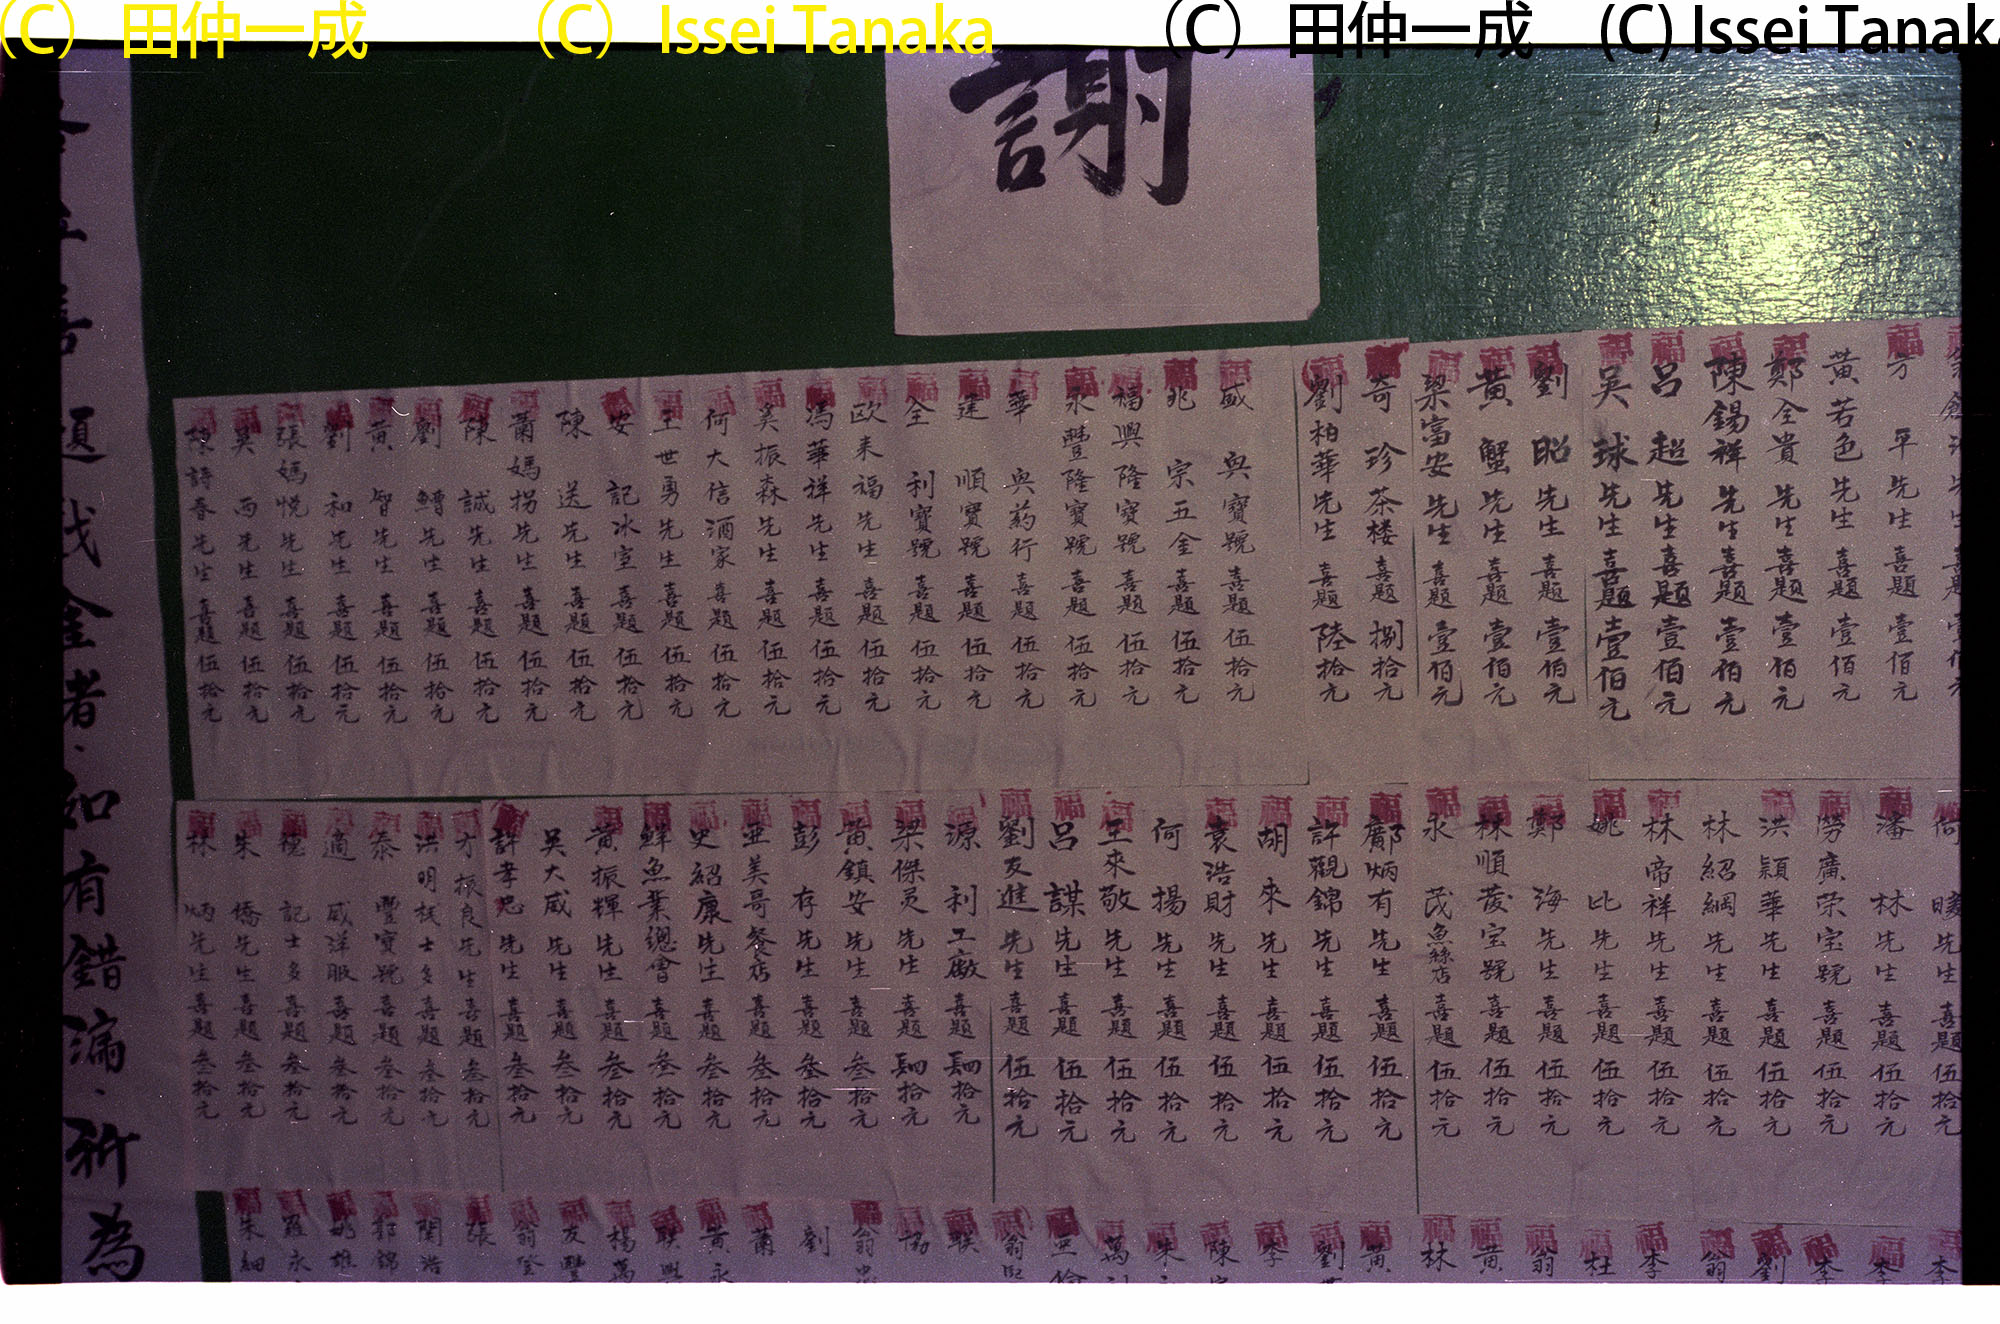 (C) 田仲一成
(C) Issei Tanaka
(C) 田仲一成
(C) Issei Tanak
謝
方平先生喜題壹佰元
黃若色先生喜題壹佰元
鄭全貴先生喜題壹佰元
陳錫祥先生喜題壹佰元
呂超先生喜題壹佰元
吳球先生喜題壹佰元
劉昭先生喜題壹佰元
黃蟹先生喜題壹佰元
梁富安先生喜題壹佰元
奇珍茶楼喜題捌拾元
劉柏華先生喜題陸拾元
盛興寶號喜題伍拾元
兆宗五金喜題伍拾元
福興隆寶號喜題伍拾元
永豐隆寶號喜題伍拾元
華興葯行喜題伍拾元
達順寶號喜題伍拾元
全利寶號喜題伍拾元
欧来福先生喜題伍拾元
馮華祥先生喜題伍拾元
吳振森先生喜題伍拾元
何大信酒家喜題伍拾元
王世勇先生喜題伍拾元
安記冰室喜題伍拾元
陳送先生喜題伍拾元
蕭媽拐先生喜題伍拾元
陳誠先生喜題伍拾元
劉鱒先生喜題伍拾元
黃智先生喜題伍拾元
劉和先生喜題伍拾元
張媽悦先生喜題伍拾元
吳西先生喜題伍拾元
陳詩春先生喜題伍拾元
何暖先生喜題伍拾元
潘林先生喜題伍拾元
勞廣荣宝號喜題伍拾元
洪穎華先生喜題伍拾元
林紹綱先生喜題伍拾元
林帝祥先生喜題伍拾元
姚比先生喜題伍拾元
鄭海先生喜題伍拾元
林順發宝號喜題伍拾元
永茂魚絲店喜題伍拾元
鄺炳有先生喜題伍拾元
許觀錦先生喜題伍拾元
胡來先生喜題伍拾元
袁浩財先生喜題伍拾元
何揚先生喜題伍拾元
王來敬先生喜題伍拾元
呂謀先生喜題伍拾元
劉友進先生喜題伍拾元
源利工廠喜題肆拾元
梁傑灵先生喜題肆拾元
黃鎮安先生喜題叁拾元
彭存先生喜題叁拾元
亞美哥餐店喜題叁拾元
史紹康先生喜題叁拾元
鮮魚業總會喜題叁拾元
黃振輝先生喜題叁拾元
吳大威先生喜題叁拾元
許孝忠先生喜題叁拾元
方振良先生喜題叁拾元
洪明棧士多喜題叁拾元
泰豐宝號喜題叁拾元
適威洋服喜題叁拾元
穗記士多喜題叁拾元
朱僑先生喜題叁拾元
林炳先生喜題叁拾元
李
李
李
劉
翁
李
杜
翁
黃
林
黃
劉
李
陳
朱
萬
亞倫
翁
聯
協
翁
劉
蕭
黃永
聯興
楊萬
友豐
翁登
張
關浩
郭錦
姚雄
羅永
朱細
喜題錢金者·如有錯漏·祈為